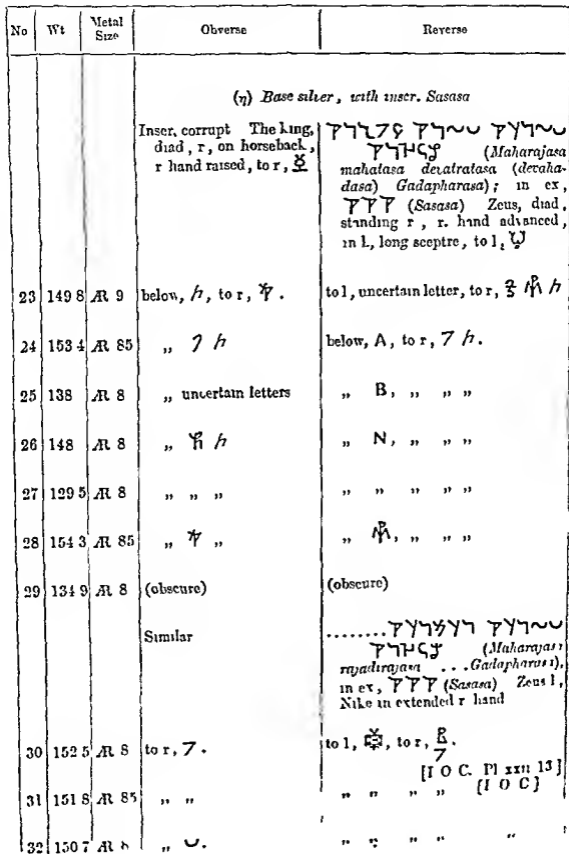 No Wt Metal Size Obverse Reverse
(η) Base silver, with inscr. Sasasa
Inscr. corrupt The king,
diad, r, on horseback,
r hand raised, to r,
(Maharajasa
mahatasa devatratasa (devaha-
dasa) Gadapharasa); in ex,
𐨯𐨯𐨯 (Sasasa) Zeus, diad,
standing r, r. hand advanced,
in l, long sceptre, to l,
23 149 8 Æ 9 below, to r, to l, uncertain letter, to r,
24 153 4 Æ 85 „ below, A, to r,
25 138 Æ 8 „ uncertain letters „ B, „ „ „
26 148 Æ 8 „ „ N, „ „ „
27 129 5 Æ 8 „ „ „ „ „ „ „ „
28 154 3 Æ 85 „ „ „ „ „ „
29 134 9 Æ 8 (obscure) (obscure)
Similar ........
(Maharajasa
rajadirajasa ... Gadapharasa),
in ex, 𐨯𐨯𐨯 (Sasasa) Zeus l,
Nike in extended r hand
30 152 5 Æ 8 to r, to l, to r,
[I O C. Pl xxii 13]
31 151 8 Æ 85 „ „ „ „ „ „ [I O C]
32 150 7 Æ 8 „ „ „ „ „ „